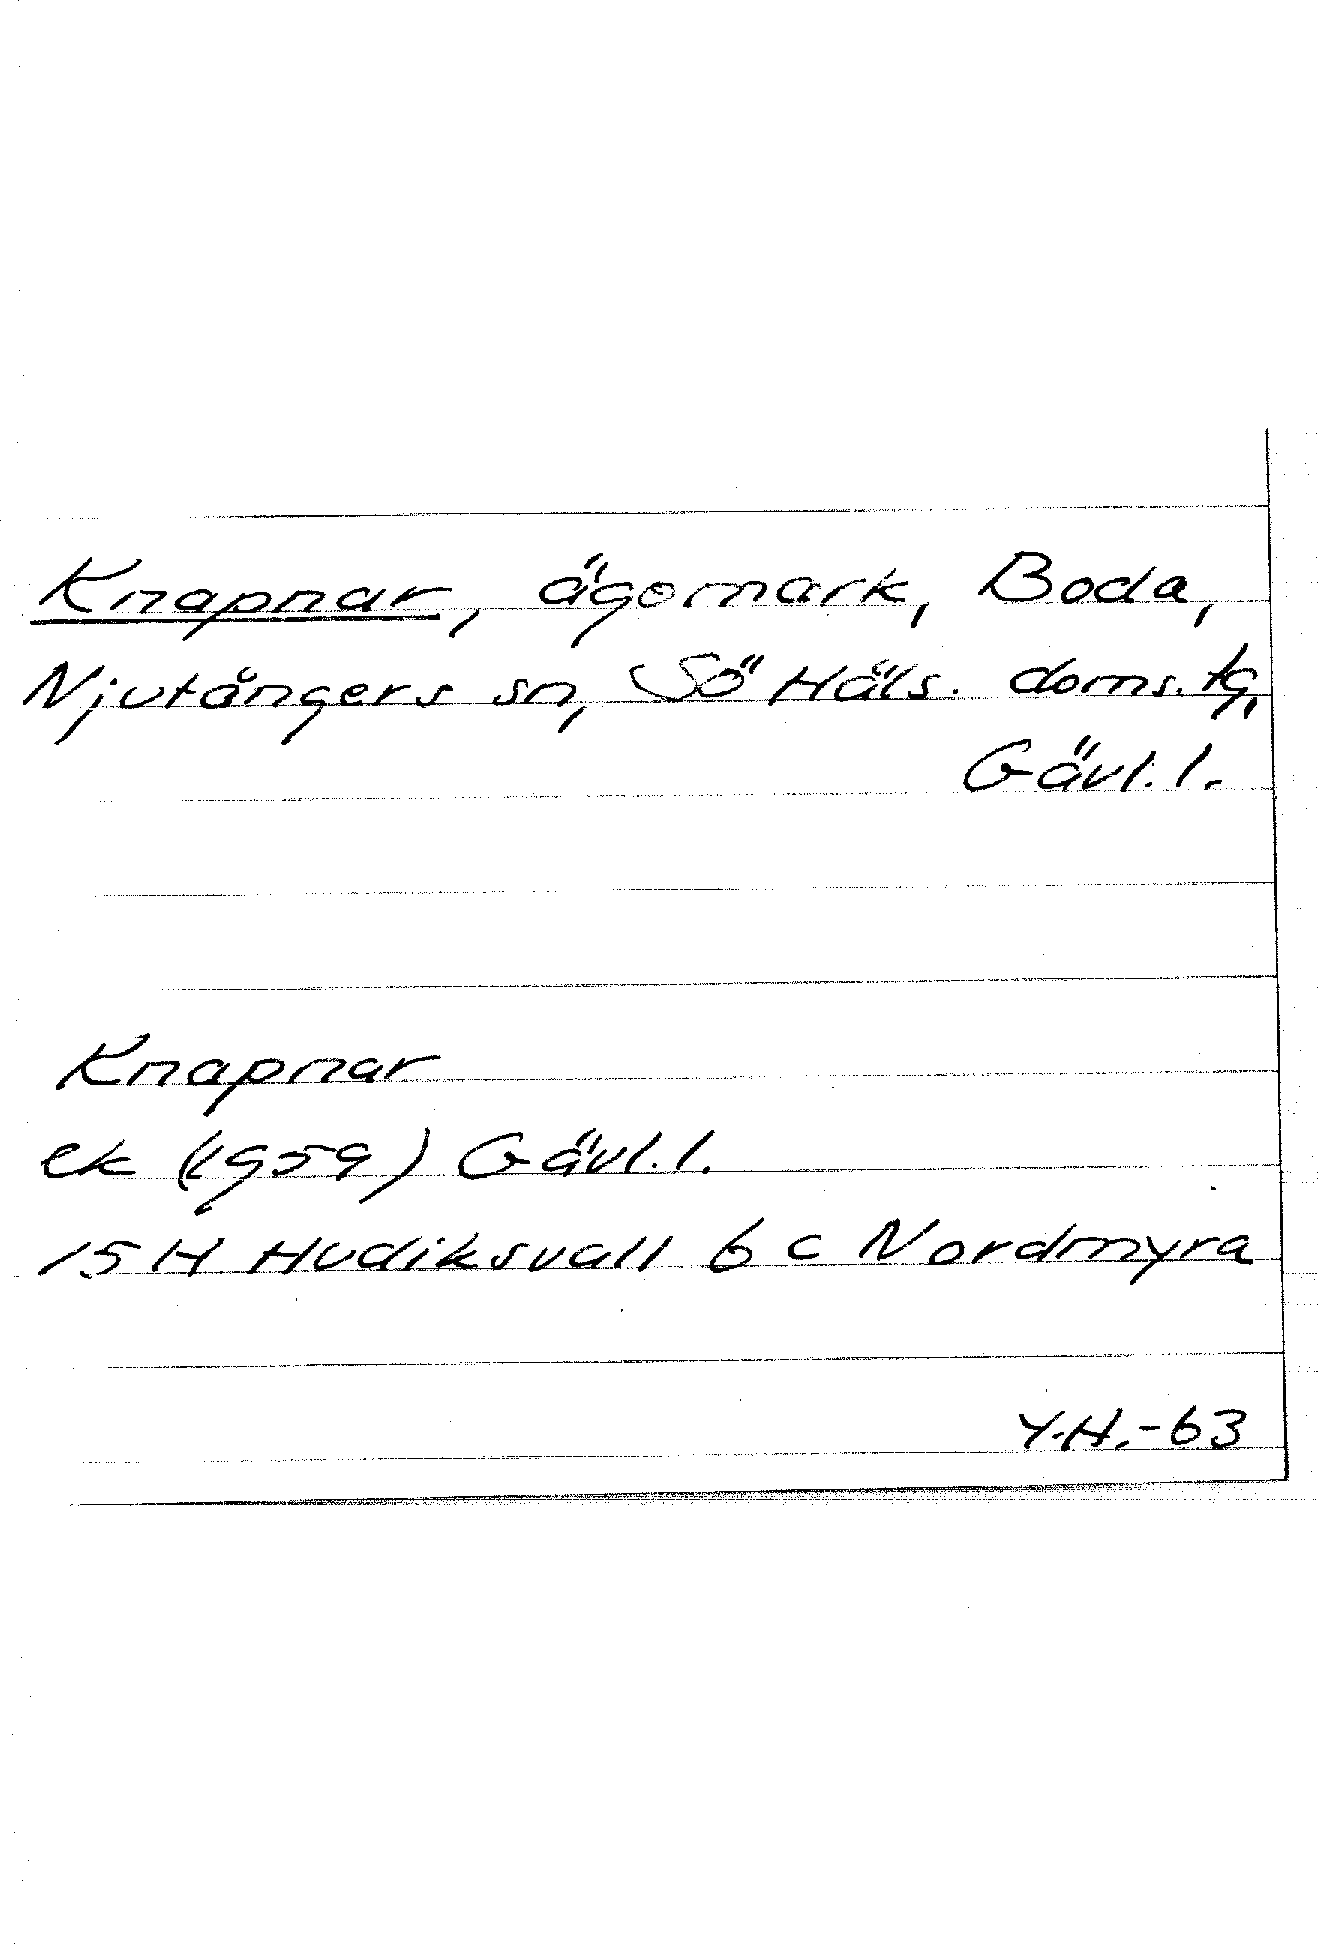 Knapnar, ägomark, Boda,
Njutångers sn, Sö Häls. doms. tg,
Gävl. l.
Knapnar
ek (1959) Gävl. l.
15 H Hudiksvall 6 c Nordmyra
Y.H.-63